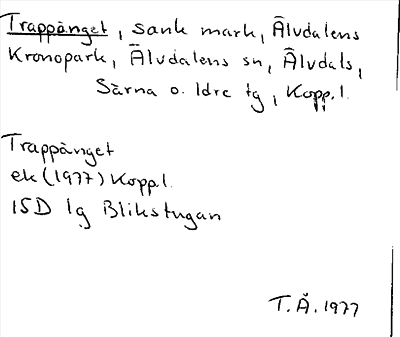 Trappänget, sank mark, Älvdalens
Kronopark, Älvdalens sn, Älvdals,
Särna o. Idre tg, Kopp.l.
Trappänget
ek (1977) Kopp.l.
15D 1g Blikstugan
T.Å. 1977